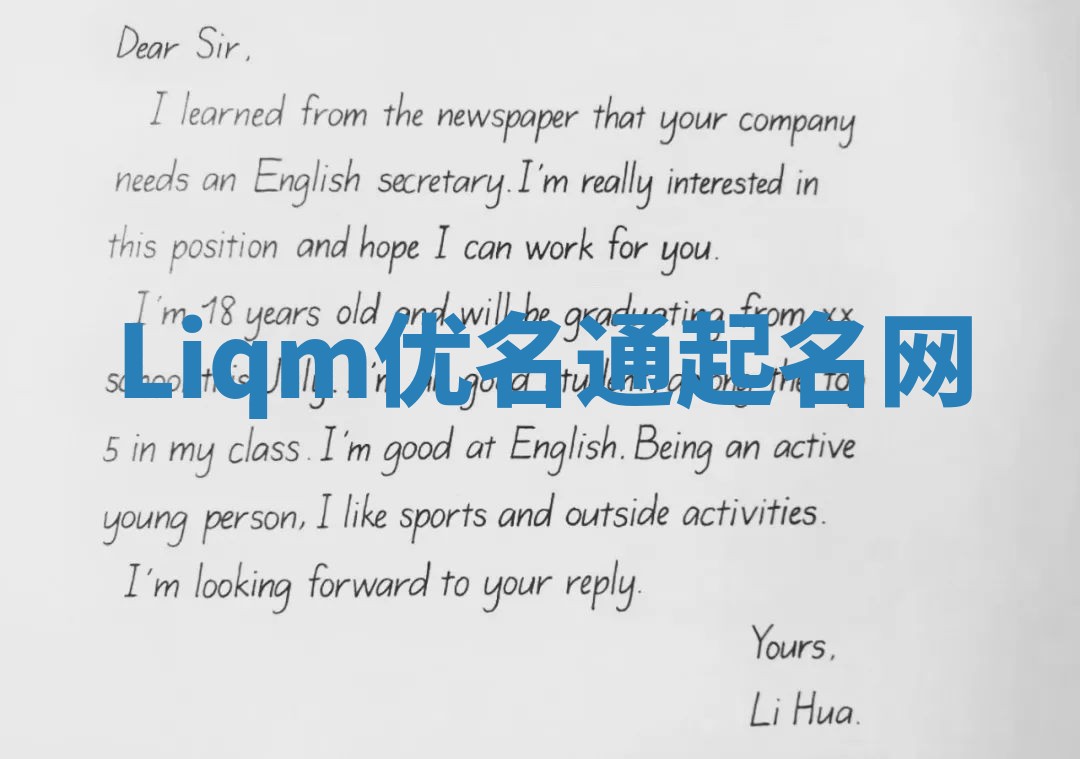 Dear Sir,
I learned from the newspaper that your company
needs an English secretary. I'm really interested in
this position and hope I can work for you.
I'm 18 years old and will be graduating from xx
Liqm优名通起名网
school this July. I'm a good student, among the top
5 in my class. I'm good at English. Being an active
young person, I like sports and outside activities.
I'm looking forward to your reply.
Yours,
Li Hua.